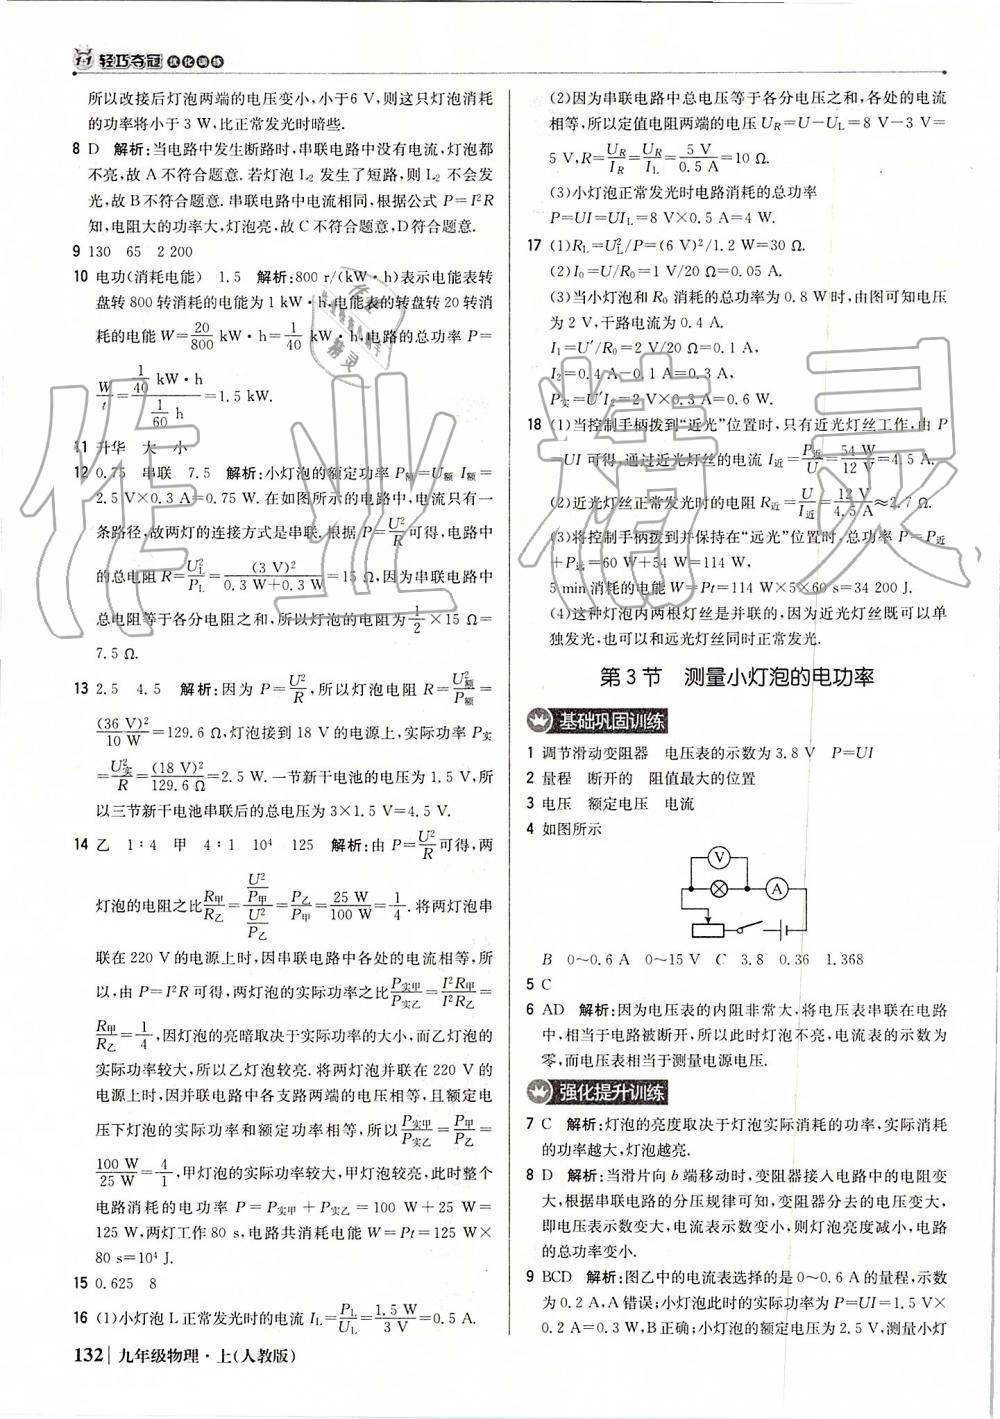 1+1 轻巧夺冠 优化训练
所以改接后灯泡两端的电压变小,小于6 V,则这只灯泡消耗
的功率将小于 3 W,比正常发光时暗些.
8 D 解析:当电路中发生断路时,串联电路中没有电流,灯泡都
不亮,故 A 不符合题意. 若灯泡 L₂ 发生了短路,则 L₂ 不会发
光,故 B 不符合题意. 串联电路中电流相同,根据公式 P=I²R
知,电阻大的功率大,灯泡亮,故 C 不符合题意,D 符合题意.
9 130 65 2 200
10 电功(消耗电能) 1.5 解析:800 r/(kW·h)表示电能表转
盘转 800 转消耗的电能为 1 kW·h,电能表的转盘转 20 转消
耗的电能 W=20/800 kW·h=1/40 kW·h,电路的总功率 P=
W/t=(1/40 kW·h)/(1/60 h)=1.5 kW.
11 升华 大 小
12 0.75 串联 7.5 解析:小灯泡的额定功率 P额=U额 I额=
2.5 V×0.3 A=0.75 W. 在如图所示的电路中,电流只有一
条路径,故两灯的连接方式是串联. 根据 P=U²/R 可得,电路中
的总电阻 R=U_L²/P_L=(3 V)²/(0.3 W+0.3 W)=15 Ω,因为串联电路中
总电阻等于各分电阻之和,所以灯泡的电阻为 1/2×15 Ω=
7.5 Ω.
13 2.5 4.5 解析:因为 P=U²/R,所以灯泡电阻 R=U额²/P额=
(36 V)²/10 W=129.6 Ω,灯泡接到 18 V 的电源上,实际功率 P实
=U实²/R=(18 V)²/129.6 Ω=2.5 W. 一节新干电池的电压为 1.5 V,所
以三节新干电池串联后的总电压为 3×1.5 V=4.5 V.
14 乙 1:4 甲 4:1 10⁴ 125 解析:由 P=U²/R 可得,两
灯泡的电阻之比 R甲/R乙=(U²/P甲)/(U²/P乙)=P乙/P甲=25 W/100 W=1/4. 将两灯泡串
联在 220 V 的电源上时,因串联电路中各处的电流相等,所
以,由 P=I²R 可得,两灯泡的实际功率之比 P实甲/P实乙=I²R甲/I²R乙=
R甲/R乙=1/4,因灯泡的亮暗取决于实际功率的大小,而乙灯泡的
实际功率较大,所以乙灯泡较亮. 将两灯泡并联在 220 V 的
电源上时,因并联电路中各支路两端的电压相等,且额定电
压下灯泡的实际功率和额定功率相等,所以 P实甲/P实乙=P甲/P乙=
100 W/25 W=4/1,甲灯泡的实际功率较大,甲灯泡较亮,此时整个
电路消耗的电功率 P=P实甲+P实乙=100 W+25 W=
125 W,两灯工作 80 s,电路共消耗电能 W=Pt=125 W×
80 s=10⁴ J.
15 0.625 8
16 (1)小灯泡 L 正常发光时的电流 I_L=P_L/U_L=1.5 W/3 V=0.5 A.
132 九年级物理·上(人教版)
(2)因为串联电路中总电压等于各分电压之和,各处的电流
相等,所以定值电阻两端的电压 U_R=U−U_L=8 V−3 V=
5 V,R=U_R/I_R=U_R/I_L=5 V/0.5 A=10 Ω.
(3)小灯泡正常发光时电路消耗的总功率
P=UI=UI_L=8 V×0.5 A=4 W.
17 (1)R_L=U_L²/P=(6 V)²/1.2 W=30 Ω.
(2)I₀=U/R₀=1 V/20 Ω=0.05 A.
(3)当小灯泡和 R₀ 消耗的总功率为 0.8 W 时,由图可知电压
为 2 V,干路电流为 0.4 A.
I₁=U′/R₀=2 V/20 Ω=0.1 A,
I₂=0.4 A−0.1 A=0.3 A,
P实=U′I₂=2 V×0.3 A=0.6 W.
18 (1)当控制手柄拨到“近光”位置时,只有近光灯丝工作,由 P
=UI 可得,通过近光灯丝的电流 I近=P近/U=54 W/12 V=4.5 A.
(2)近光灯丝正常发光时的电阻 R近=U/I近=12 V/4.5 A≈2.7 Ω.
(3)将控制手柄拨到并保持在“远光”位置时,总功率 P=P近
+P远=60 W+54 W=114 W,
5 min消耗的电能 W=Pt=114 W×5×60 s=34 200 J.
(4)这种灯泡内两根灯丝是并联的,因为近光灯丝既可以单
独发光,也可以和远光灯丝同时正常发光.
第 3 节 测量小灯泡的电功率
基础巩固训练
1 调节滑动变阻器 电压表的示数为 3.8 V P=UI
2 量程 断开的 阻值最大的位置
3 电压 额定电压 电流
4 如图所示
V
A
B 0~0.6 A 0~15 V C 3.8 0.36 1.368
5 C
6 AD 解析:因为电压表的内阻非常大,将电压表串联在电路
中,相当于电路被断开,所以此时灯泡不亮,电流表的示数为
零,而电压表相当于测量电源电压.
强化提升训练
7 C 解析:灯泡的亮度取决于灯泡实际消耗的功率,实际消耗
的功率越大,灯泡越亮.
8 D 解析:当滑片向 b 端移动时,变阻器接入电路中的电阻变
大,根据串联电路的分压规律可知,变阻器分去的电压变大,
即电压表示数变大,电流表示数变小,则灯泡亮度减小,电路
的总功率变小.
9 BCD 解析:图乙中的电流表选择的是 0~0.6 A 的量程,示数
为 0.2 A,A 错误;小灯泡此时的实际功率为 P=UI=1.5 V×
0.2 A=0.3 W,B 正确;小灯泡的额定电压为 2.5 V,测量小灯
作业精灵
作业
精灵